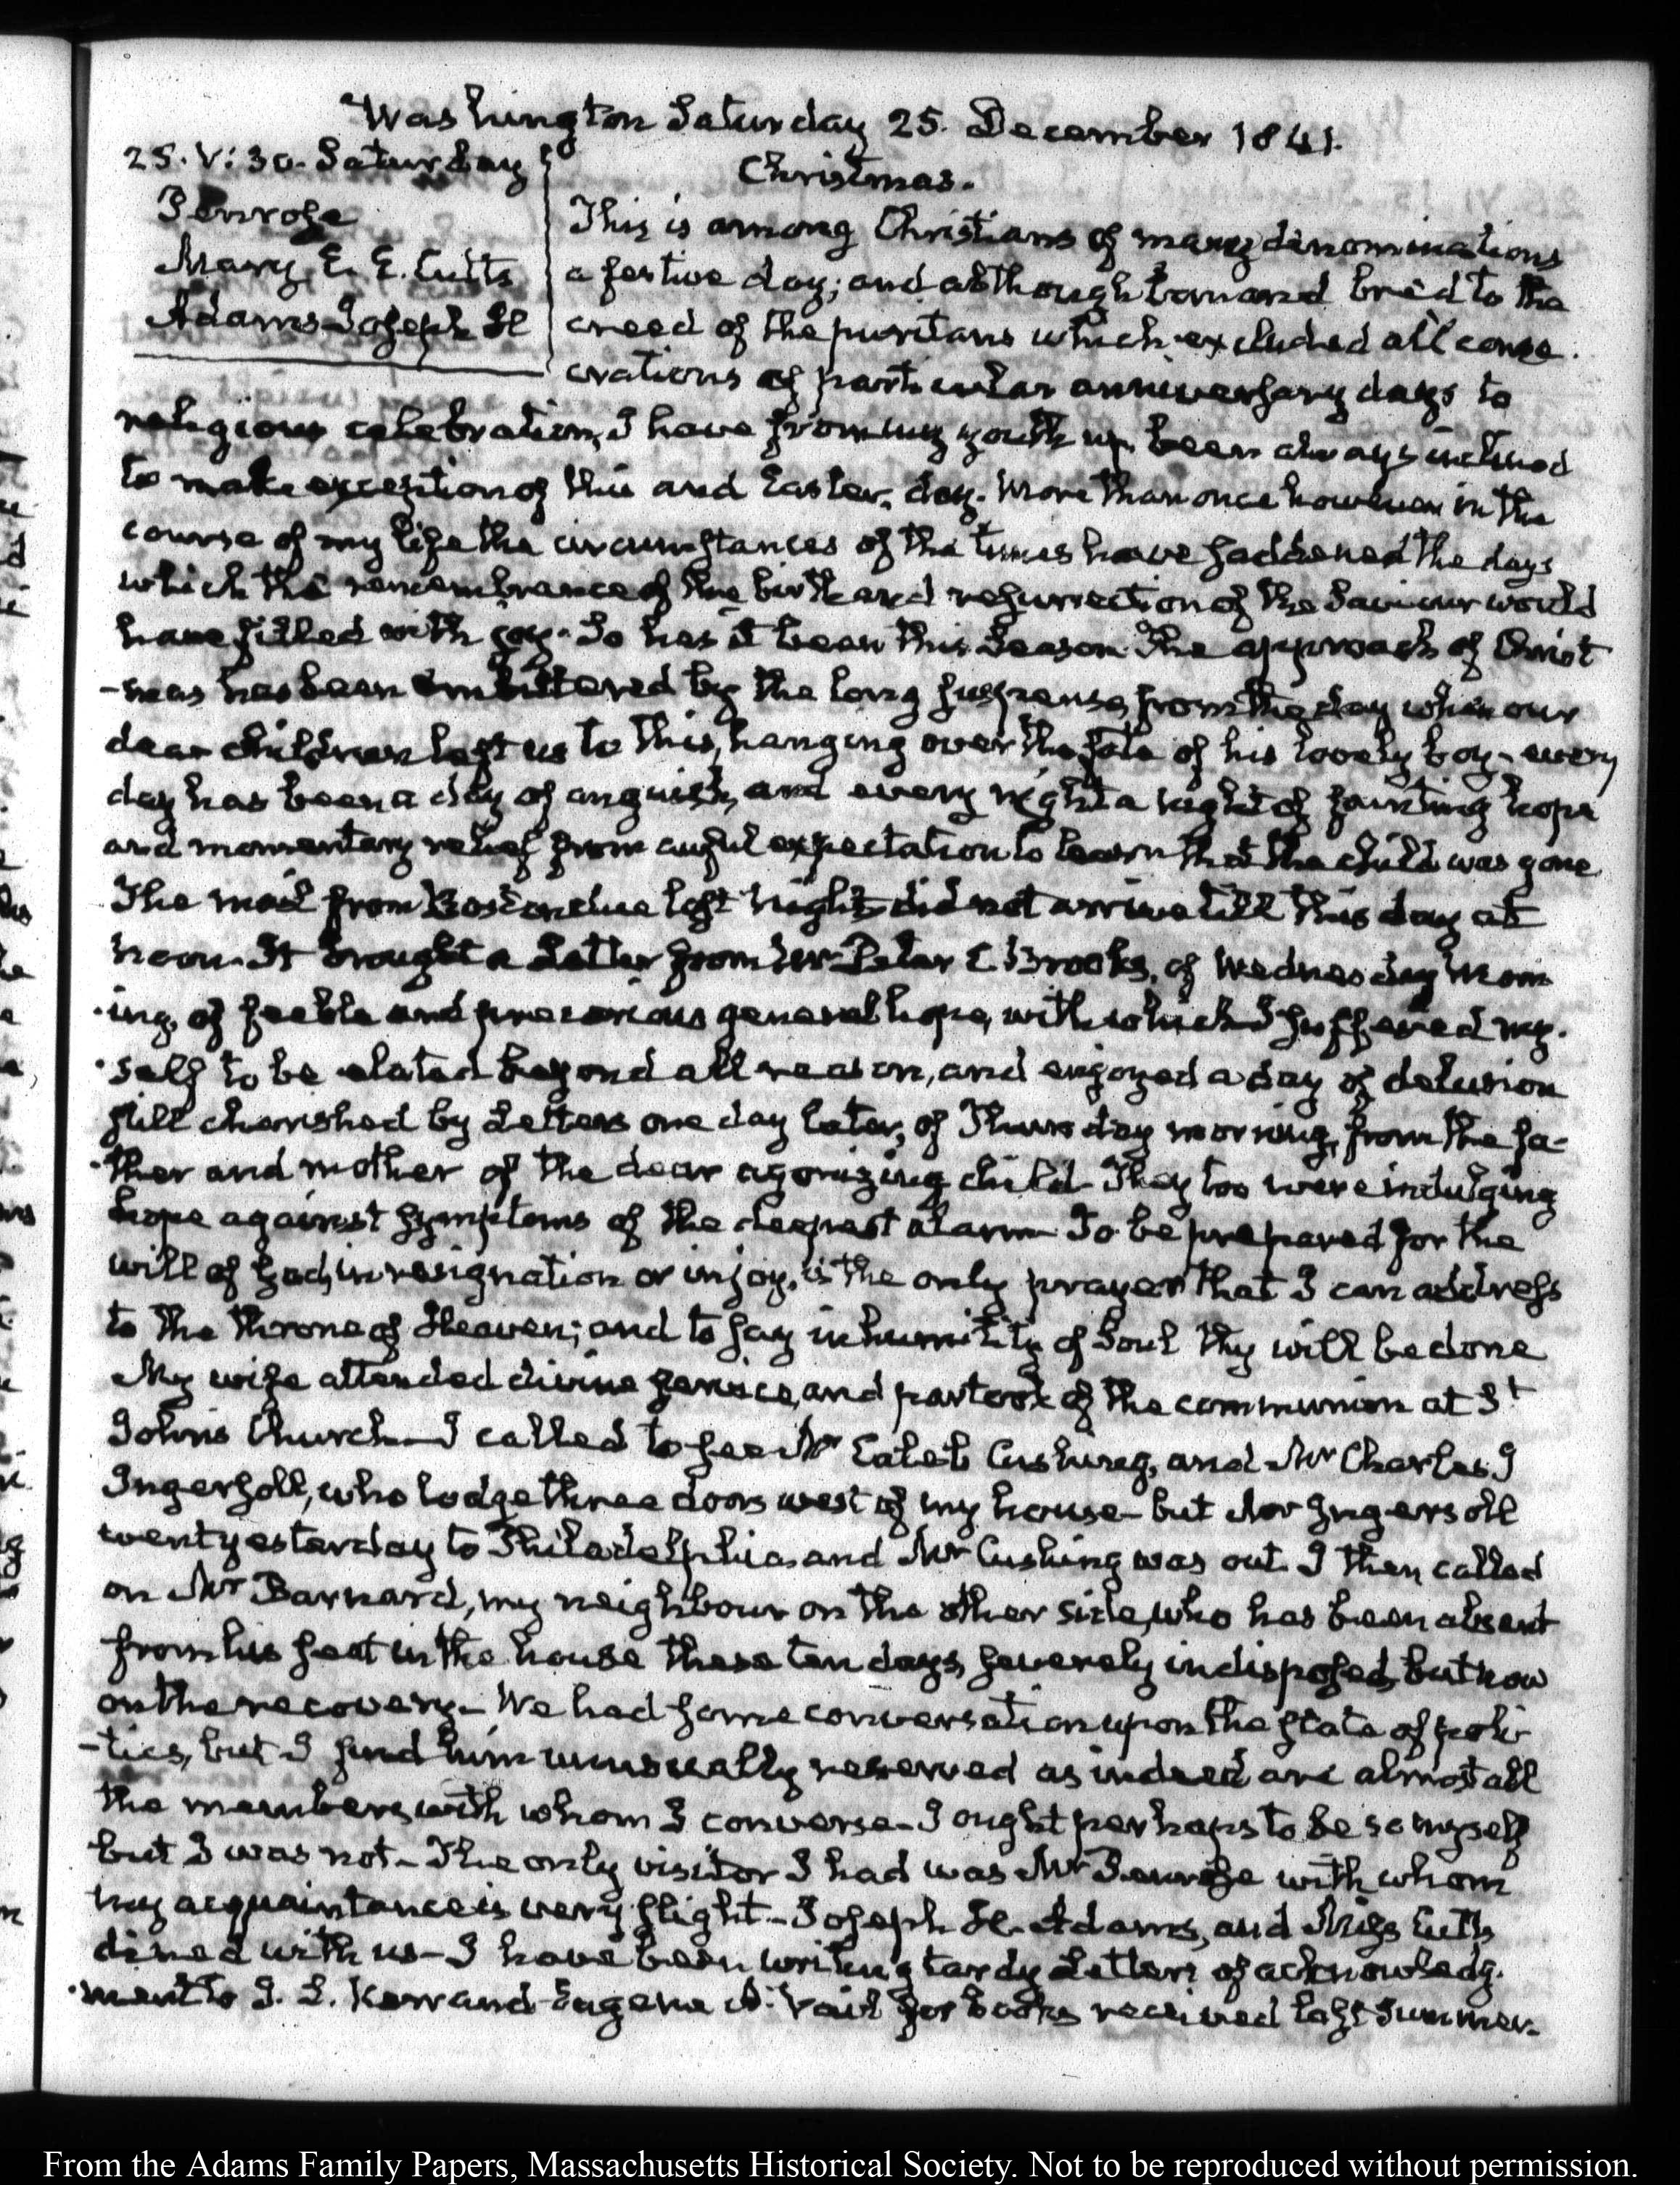 Washington Saturday 25. December 1841.
25. V: 30. Saturday
Penrose
Mary E. E. Cutts
Adams Joseph H
Christmas.
This is among Christians of many denominations
a festive day; and although born and bred to the
creed of the puritans which excluded all conse-
crations of particular anniversary days to
religious celebration, I have from my youth up been always inclined
to make exception of this and Easter-day. More than once however in the
course of my life the circumstances of the times have saddened the days
which the remembrance of the birth and resurrection of the Saviour would
have filled with joy. So has it been this Season. The approach of Christ
-mas has been embittered by the long suspense, from the day when our
dear children left us to this, hanging over the fate of his lovely boy- every
day has been a day of anguish, and every night a night of fainting hope
and momentary relief from awful expectation to learn that the child was gone
The mail from Boston due last Night did not arrive till this day at
noon. It brought a Letter from Mr Peter C. Brooks, of Wednesday Morn
-ing, of feeble and precarious general hope, with which I suffered my-
-self to be elated beyond all reason, and enjoyed a day of delusion
still cherished by Letters one day later, of Thursday morning, from the fa-
-ther and mother of the dear agonizing child- They too were indulging
hope against symptoms of the deepest alarm- To be prepared for the
will of God, in resignation or in joy, is the only prayer that I can address
to the throne of Heaven; and to say in humility of Soul Thy will be done
My wife attended divine service, and partook of the communion at St
Johns Church- I called to see Mr Caleb Cushing, and Mr Charles J
Ingersoll, who lodge three doors west of my house- but Mr Ingersoll
went yesterday to Philadelphia, and Mr Cushing was out. I then called
on Mr Barnard, my neighbour on the other side, who has been absent
from his seat in the house these ten days, severely indisposed, but now
on the recovery- We had some conversation upon the state of poli-
-tics, but I find him unusually reserved as indeed are almost all
the members with whom I converse- I ought perhaps to be so myself
but I was not- The only visitor I had was Mr Penrose with whom
my acquaintance is very slight- Joseph H. Adams, and Miss Cutts
dined with us- I have been writing tardy Letters of acknowledg-
-ment to J. L. Kerr and Eugene A. Vail for books received last Summer-
From the Adams Family Papers, Massachusetts Historical Society. Not to be reproduced without permission.